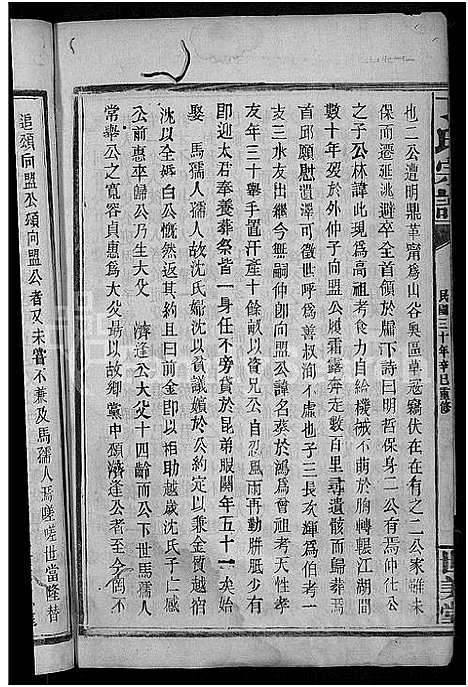 也二公遭明鼎革甯爲山谷奧區草冦竊伏在在有之二公家雖未
保而遷延逃避卒全首領於牖下詩曰明哲保身二公有焉仲仕公
之子公林諱此現公高祖考食力自給機械不萌於胸轉輾江湖間
數十年歿於外仲子向盟公履霜露奔走數百里尋遺骸而歸葬焉
首邱願慰遺澤可徵世呼爲善权洵不虛也子三長次輝爲伯考一
支三水友出繼今無嗣仲卽向盟公諱名葵於鴻爲曾祖考天性孝
友年三十舉手置汗產十餘畝以資兄公自忍風雨再動胼胝少有
卽迎太君奉養葬祭皆一身任不旁貸於昆弟服闋年五十一矣始
娶 馬孺人孺人故沈氏婦沈以貧議嬪於公約定以兼金質越宿
沈以全婚白公慨然返其約且曰前金卽以相助越歲沈氏子亡感
公前惠率歸公乃生大父 濟逢公大父十四齡而公下世馬孺人
常舉公之寬容貞惠爲大父最以故鄉黨中頌濟逢公者至今猶不
追頌向盟公頌向盟公者又未嘗不兼及馬孺人焉嗟嗟世當隆替
氏宗譜
民國三十年辛巳重修
世美堂